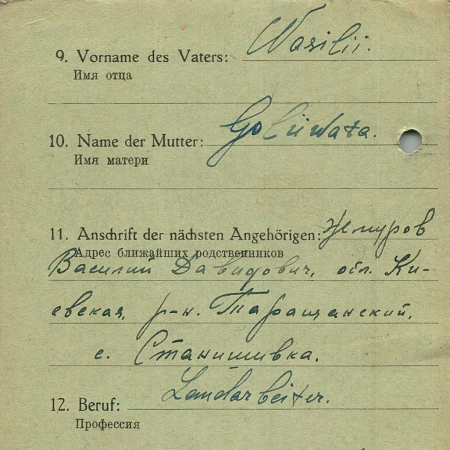 9. Vorname des Vaters: Wasilii.
Имя отца
10. Name der Mutter:
Имя матери
11. Anschrift der nächsten Angehörigen:
Адрес ближайших родственников
Василий Давидович, обл. Ки-
евская, р-н. Таращанский,
с. Станишивка.
12. Beruf: Landarbeiter.
Профессия